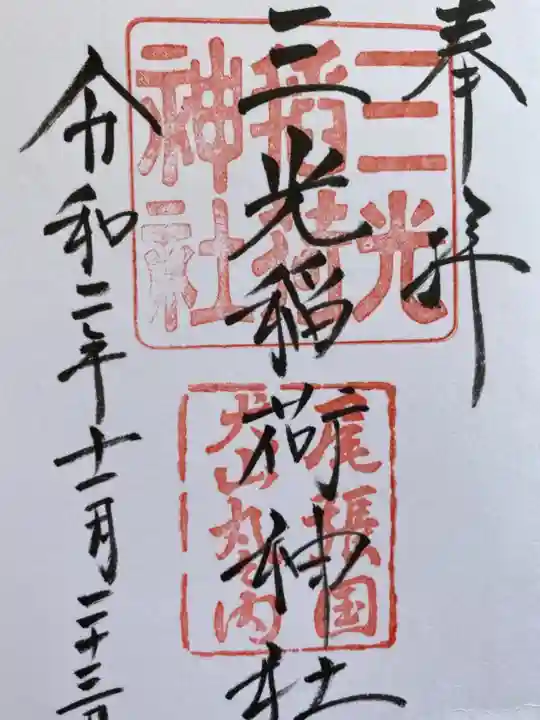 奉拝
三光稲荷神社
令和二年十一月二十三日
三光
稲荷
神社
尾張国
犬山丸之内